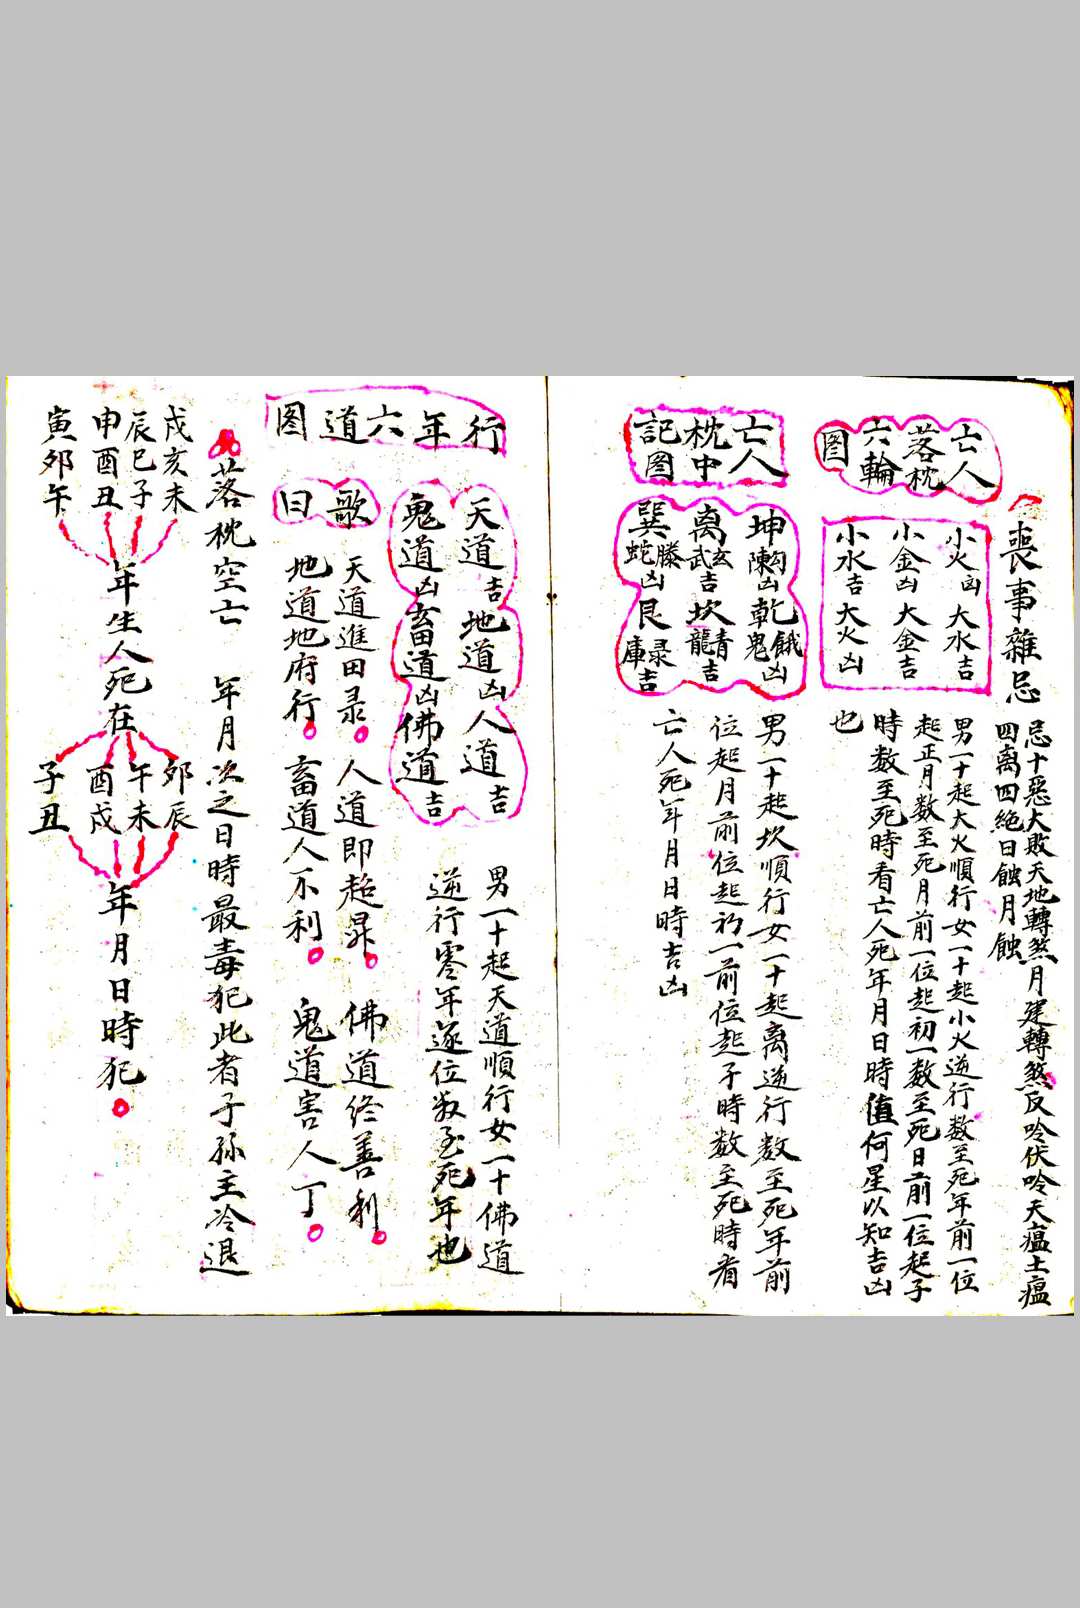 喪事雜忌
忌十惡大敗天地轉煞月建轉煞反吟伏吟天瘟土瘟
四离四絕日蝕月蝕
亡人
落枕
六輪
图
小火凶 大水吉
小金凶 大金吉
小水吉 大火凶
男一十起大火順行女一十起小火逆行数至死年前一位
起正月数至死月前一位起初一数至死日前一位起子
時数至死時看亡人死年月日時值何星以知吉凶
也
亡人
枕中
記图
坤勾陳凶 乾餓鬼凶
离玄武吉 坎青龍吉
巽螣蛇凶 艮录庫吉
男一十起坎順行女一十起离逆行数至死年前
位起月前位起初一前位起子時数至死時看
亡人死年月日時吉凶
行年六道图
天道吉 地道凶 人道吉
鬼道凶 畜道凶 佛道吉
男一十起天道順行女一十佛道
逆行零年逐位数至死年也
歌曰
天道進田录 人道即超昇 佛道终善利
地道地府行 畜道人不利 鬼道害人丁
落枕空亡 年月次之日時最毒犯此者子孫主冷退
戌亥未
辰巳子
申酉丑
寅卯午
年生人死在
卯辰
午未
酉戌
子丑
年月日時犯